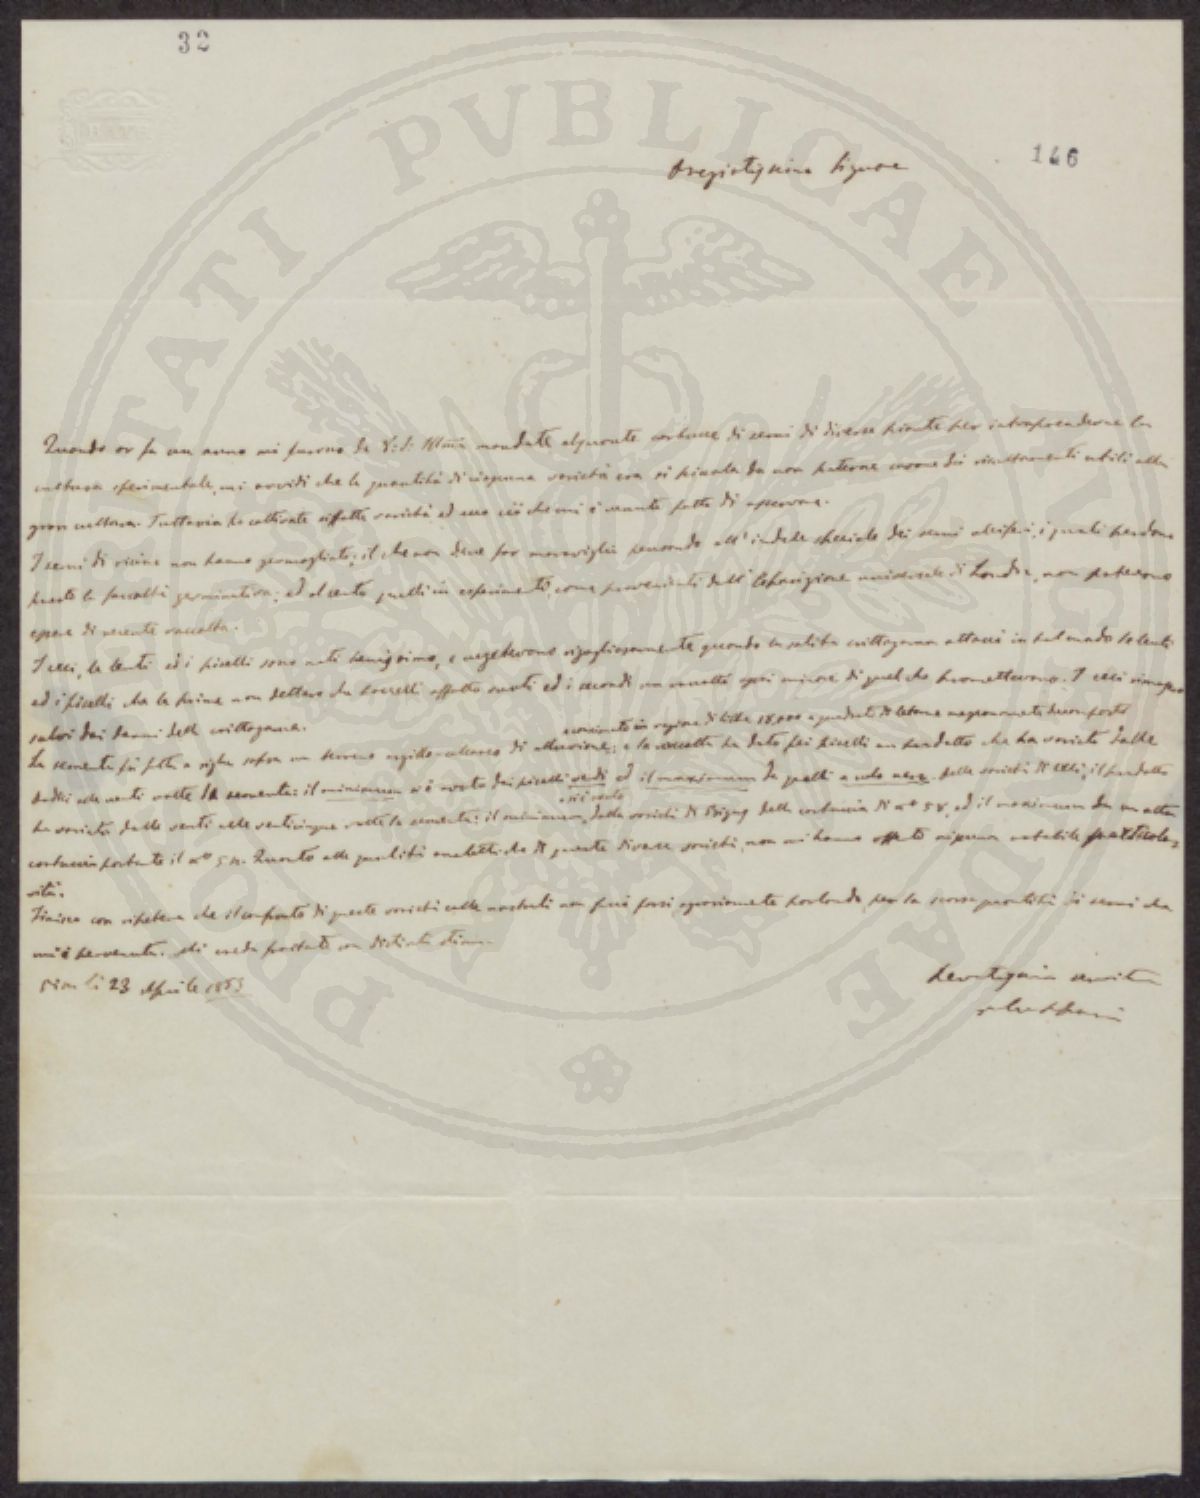 32
146
Pregiatissimo Signore
Quando or fa un anno mi furono da V. S. Illma mandate alquante cartucce di semi di diverse piante per intraprenderne la
cultura sperimentale, mi avvidi che la quantità di ciascuna varietà era sì piccola da non poterne cavare dei risultamenti utili alla
gran cultura. Tuttavia ho coltivate siffatte varietà ed ecco ciò che mi è venuto fatto di osservare.
I semi di ricino non hanno germogliato; il che non deve far maraviglia pensando all' indole speciale dei semi oleiferi, i quali perdono
presto la facoltà germinativa; ed al certo quelli in esperimento, come provenienti dall' Esposizione universale di Londra, non potevano
essere di recente raccolta.
I ceci, le lenti ed i piselli sono nati benissimo, e vegetavano rigogliosamente quando la solita crittogama attaccò in tal modo le lenti
ed i piselli che le prime non dettero che baccelli affatto vuoti ed i secondi un raccolto assai minore di quel che promettevano. I ceci rimasero
salvi dai danni della crittogama.
concimato in ragione di 18,000 a quadrato di letame decomposto
La sementa fu fatta a righe sopra un terreno argillo-calcareo di alluvione; e la raccolta ha dato pei piselli un prodotto che ha variato dalle
dodici alle venti volte la sementa: il minimum si è avuto dai piselli verdi ed il maximum da quelli a occhio nero. Delle varietà di ceci, il prodotto
si è avuto
ha variato dalle venti alle venticinque volte la sementa: il minimum, dalla varietà di della cartuccia di n° 58, ed il maximum da un altra
cartuccia portante il n° 54. Quanto alle qualità di queste diverse varietà, non mi hanno offerto nessuna notabile particola-
rità.
Finisco con ripetere che il confronto di queste varietà colle nostrali non può farsi agrariamente parlando, per la scarsa quantità di semi che
mi è pervenuta. Mi creda pertanto con distinta stima
li 23 Aprile 1863
Devotissimo servitore